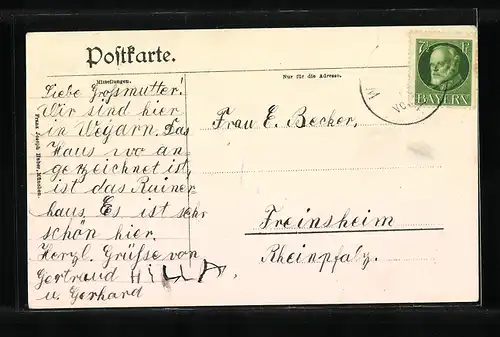 Postkarte.
Mitteilungen.
Nur für die Adresse.
7½
BAYERN
Liebe Großmutter!
Wir sind hier
in Weyarn. Das
Haus wo an-
gezeichnet ist,
ist das Rainer-
haus. Es ist sehr
schön hier.
Herzl. Grüße von
Gertraud HILLA,
u. Gerhard
Frau E. Becher,
Freinsheim
Rheinpfalz.
Franz Joseph Huber, München.